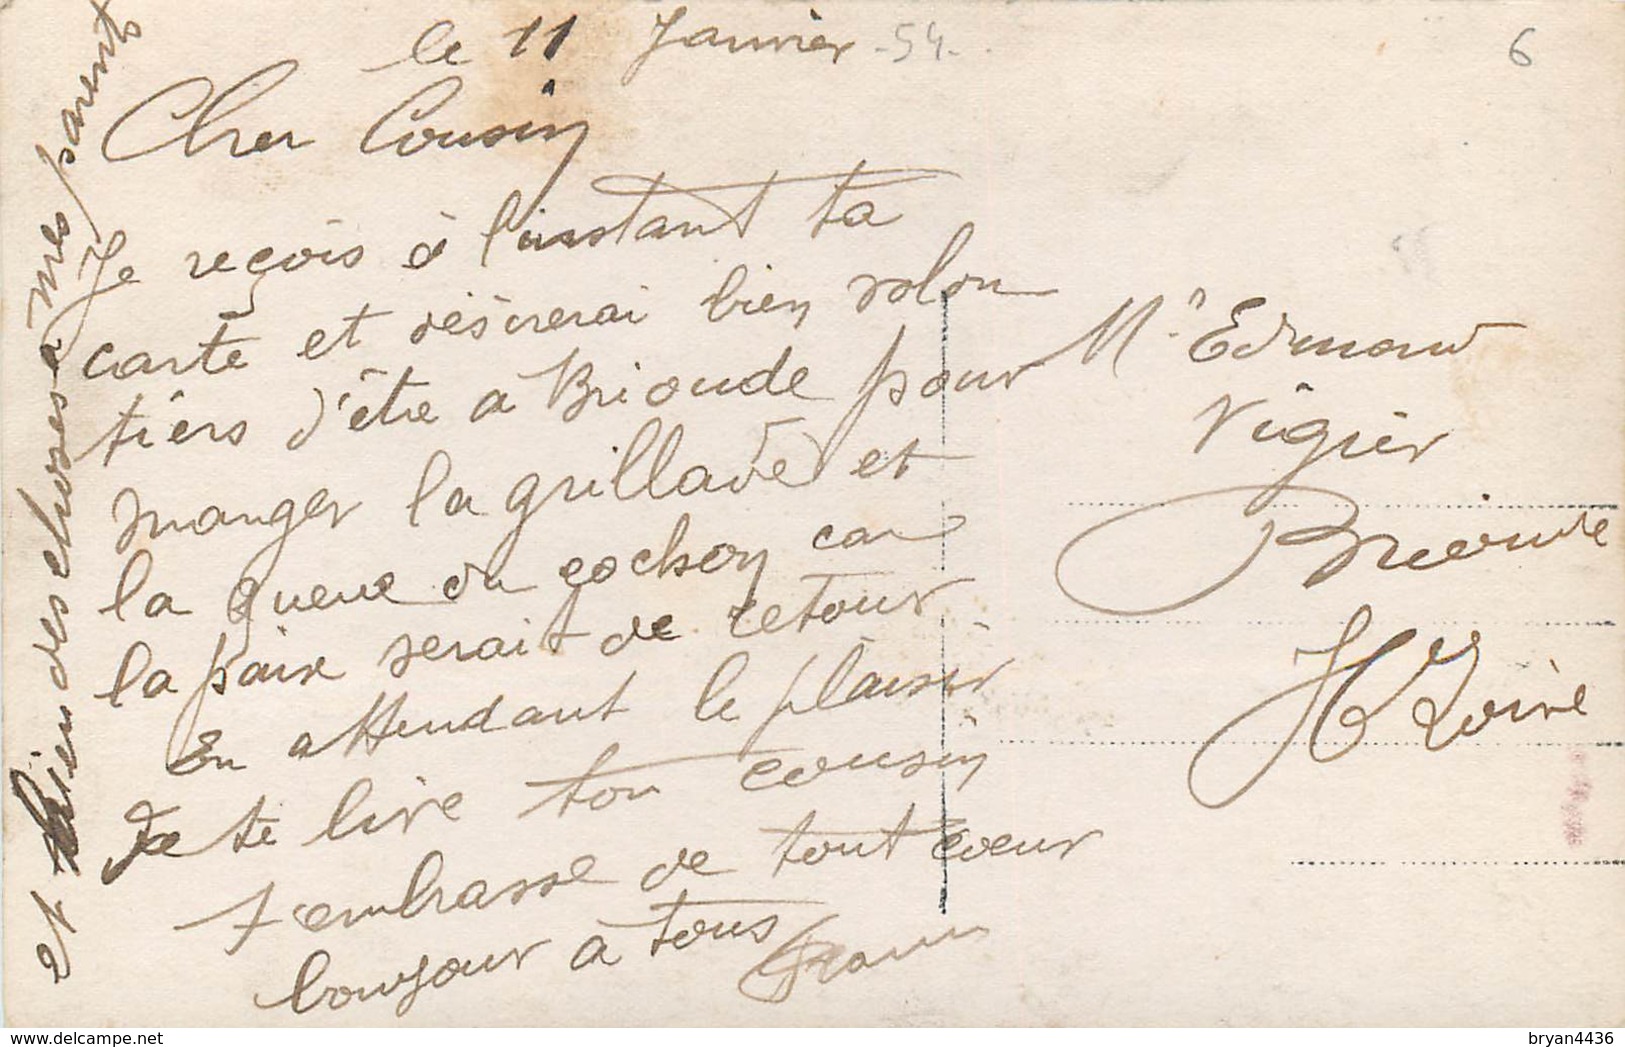 le 11 Janvier -54-
6
Cher Cousin
Je reçois à l'instant ta
carte et désirerai bien volon
tiers d'être a Brioude pour
manger la grillade et
la queue du cochon car
la paix serait de retour
En attendant le plaisir
de te lire ton cousin
t'embrasse de tout cœur
bonjour à tous
et bien des choses a mes parents
Mr Edmond
Vigier
Brioude
Hte Loire
delcampe.net
bryan4436